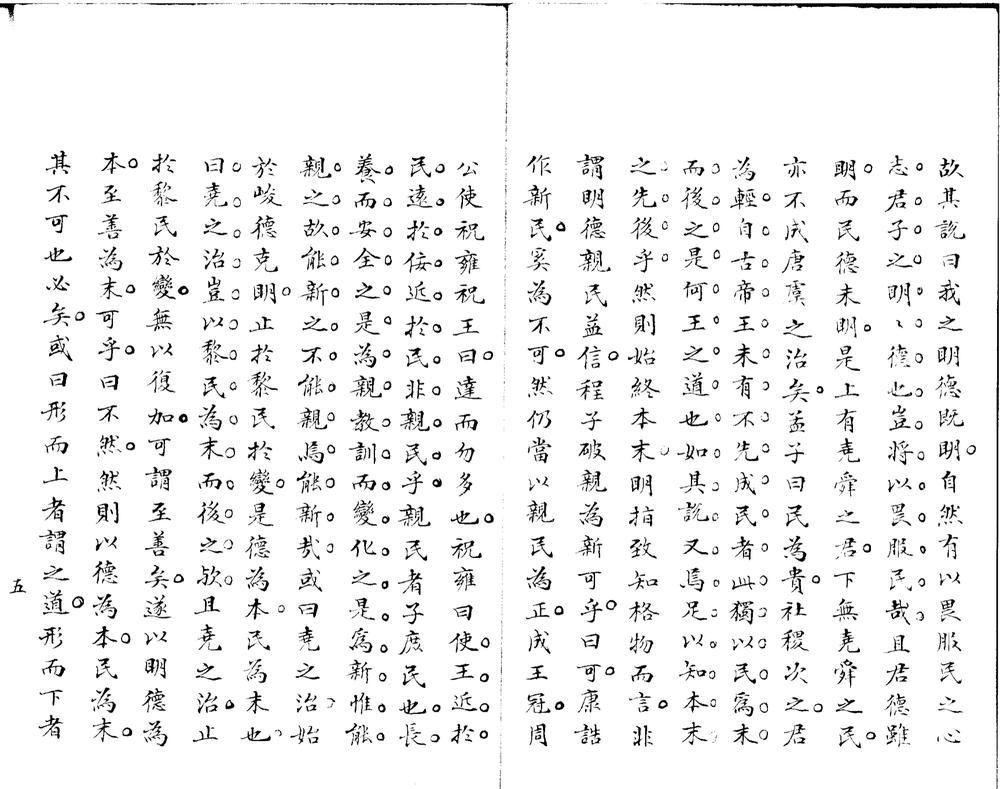 故其說曰我之明德既明。自然有以畏服民之心
志。君子之明。〻德也。豈將。以畏。服民。哉。且君德雖
明。而民德未明。是上有堯舜之君。下無堯舜之民。
亦不成唐虞之治矣。孟子曰民為貴。社稷次之。君
為輕。自古帝王未有不先成民者此獨以民為末。
而後之。是何王之道也如其說又焉足以知本末
之先後乎。然則始終本末。明指致知格物而言。非
謂明德親民益信。程子破親為新可乎。曰可。康誥
作新民。奚為不可。然仍當以親民為正。成王冠。周
公使祝雍祝王曰。達而勿多也。祝雍曰使。王近於。
民。遠。於。佞。近。於。民。非親。民。乎。親民者子庶民也。長。
養。而。安。全。之。是。為。親。教。訓。而。變。化。之。是。為。新。惟。能。
親。之。故。能。新。之。不。能。親。焉。能。新。哉。或曰堯之治始
於峻德克明。止於黎民於變。是德為本。民為末也。
曰。堯。之。治。豈。以。黎。民。為。末。而。後。之。歟。且堯之治。止
於黎民於變。無以復加。可謂至善矣。遂以明德為
本。至善為末。可乎。曰不然。然則以德為本。民為末。
其不可也必矣。或曰形而上者謂之道。形而下者
五